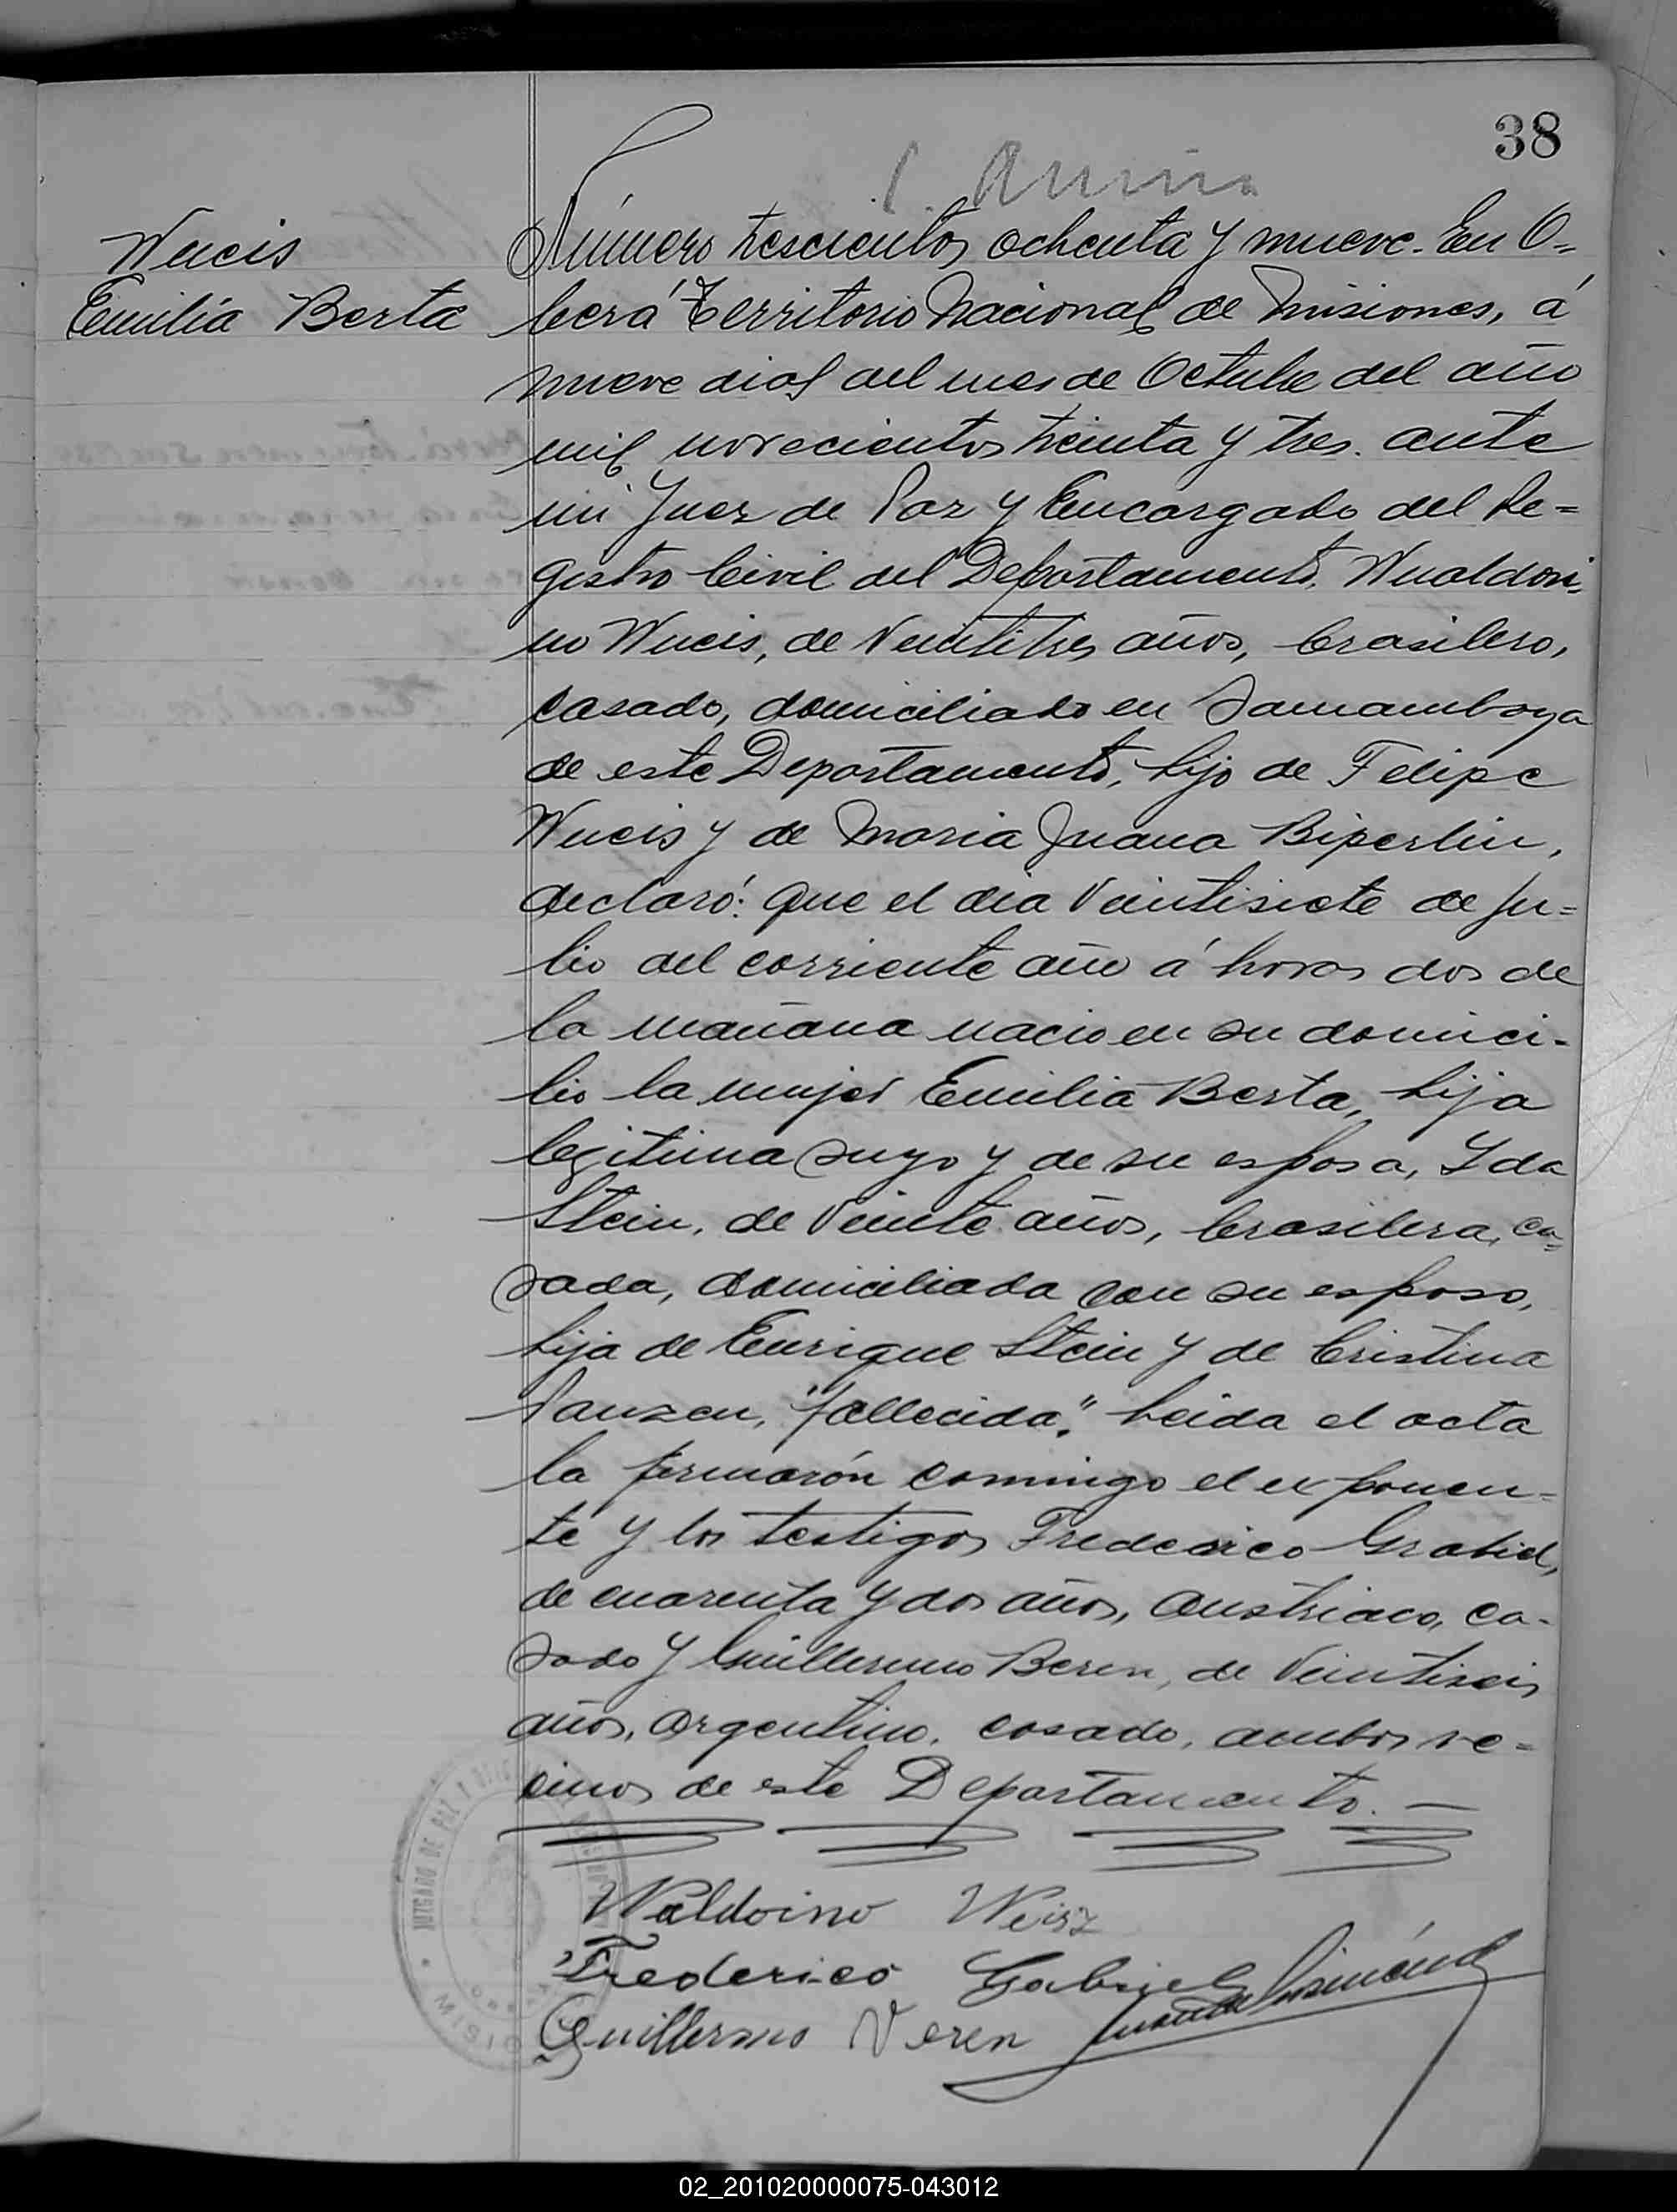 38
Wucis
Emilia Berta
Número trescientos ochenta y nueve. En O-
berá Territorio Nacional de Misiones, á
nueve dias del mes de Octubre del año
mil novecientos treinta y tres. ante
mi Juez de Paz y Encargado del Re=
gistro Civil del Departamento, Wualdori-
no Wucis, de Veintitres años, brasilero,
casado, domiciliado en Samambaya
de este Departamento, hijo de Felipe
Wucis y de Maria Juana Biperlin,
declaró: que el dia Veintisiete de Ju=
lio del corriente año á horas dos de
la mañana nacio en su domici-
lio la mujer Emilia Berta, hija
legitima suya y de su esposa, Ida
Stein, de Veinte años, brasilera, ca=
sada, domiciliada con su esposo,
hija de Enrique Stein y de Cristina
Panzen, "fallecida". Leida el acta
la firmarón conmigo el exponen=
te y los testigos Frederico Grabiel,
de cuarenta y dos años, austriaco, ca-
sado y Guillermo Beren, de Veintiseis
años, argentino, casado, ambos ve=
cinos de este Departamento. —
Waldoino Weisz
Frederico Gabriel
Guillermo Veren
JUZGADO DE PAZ
02_201020000075-043012